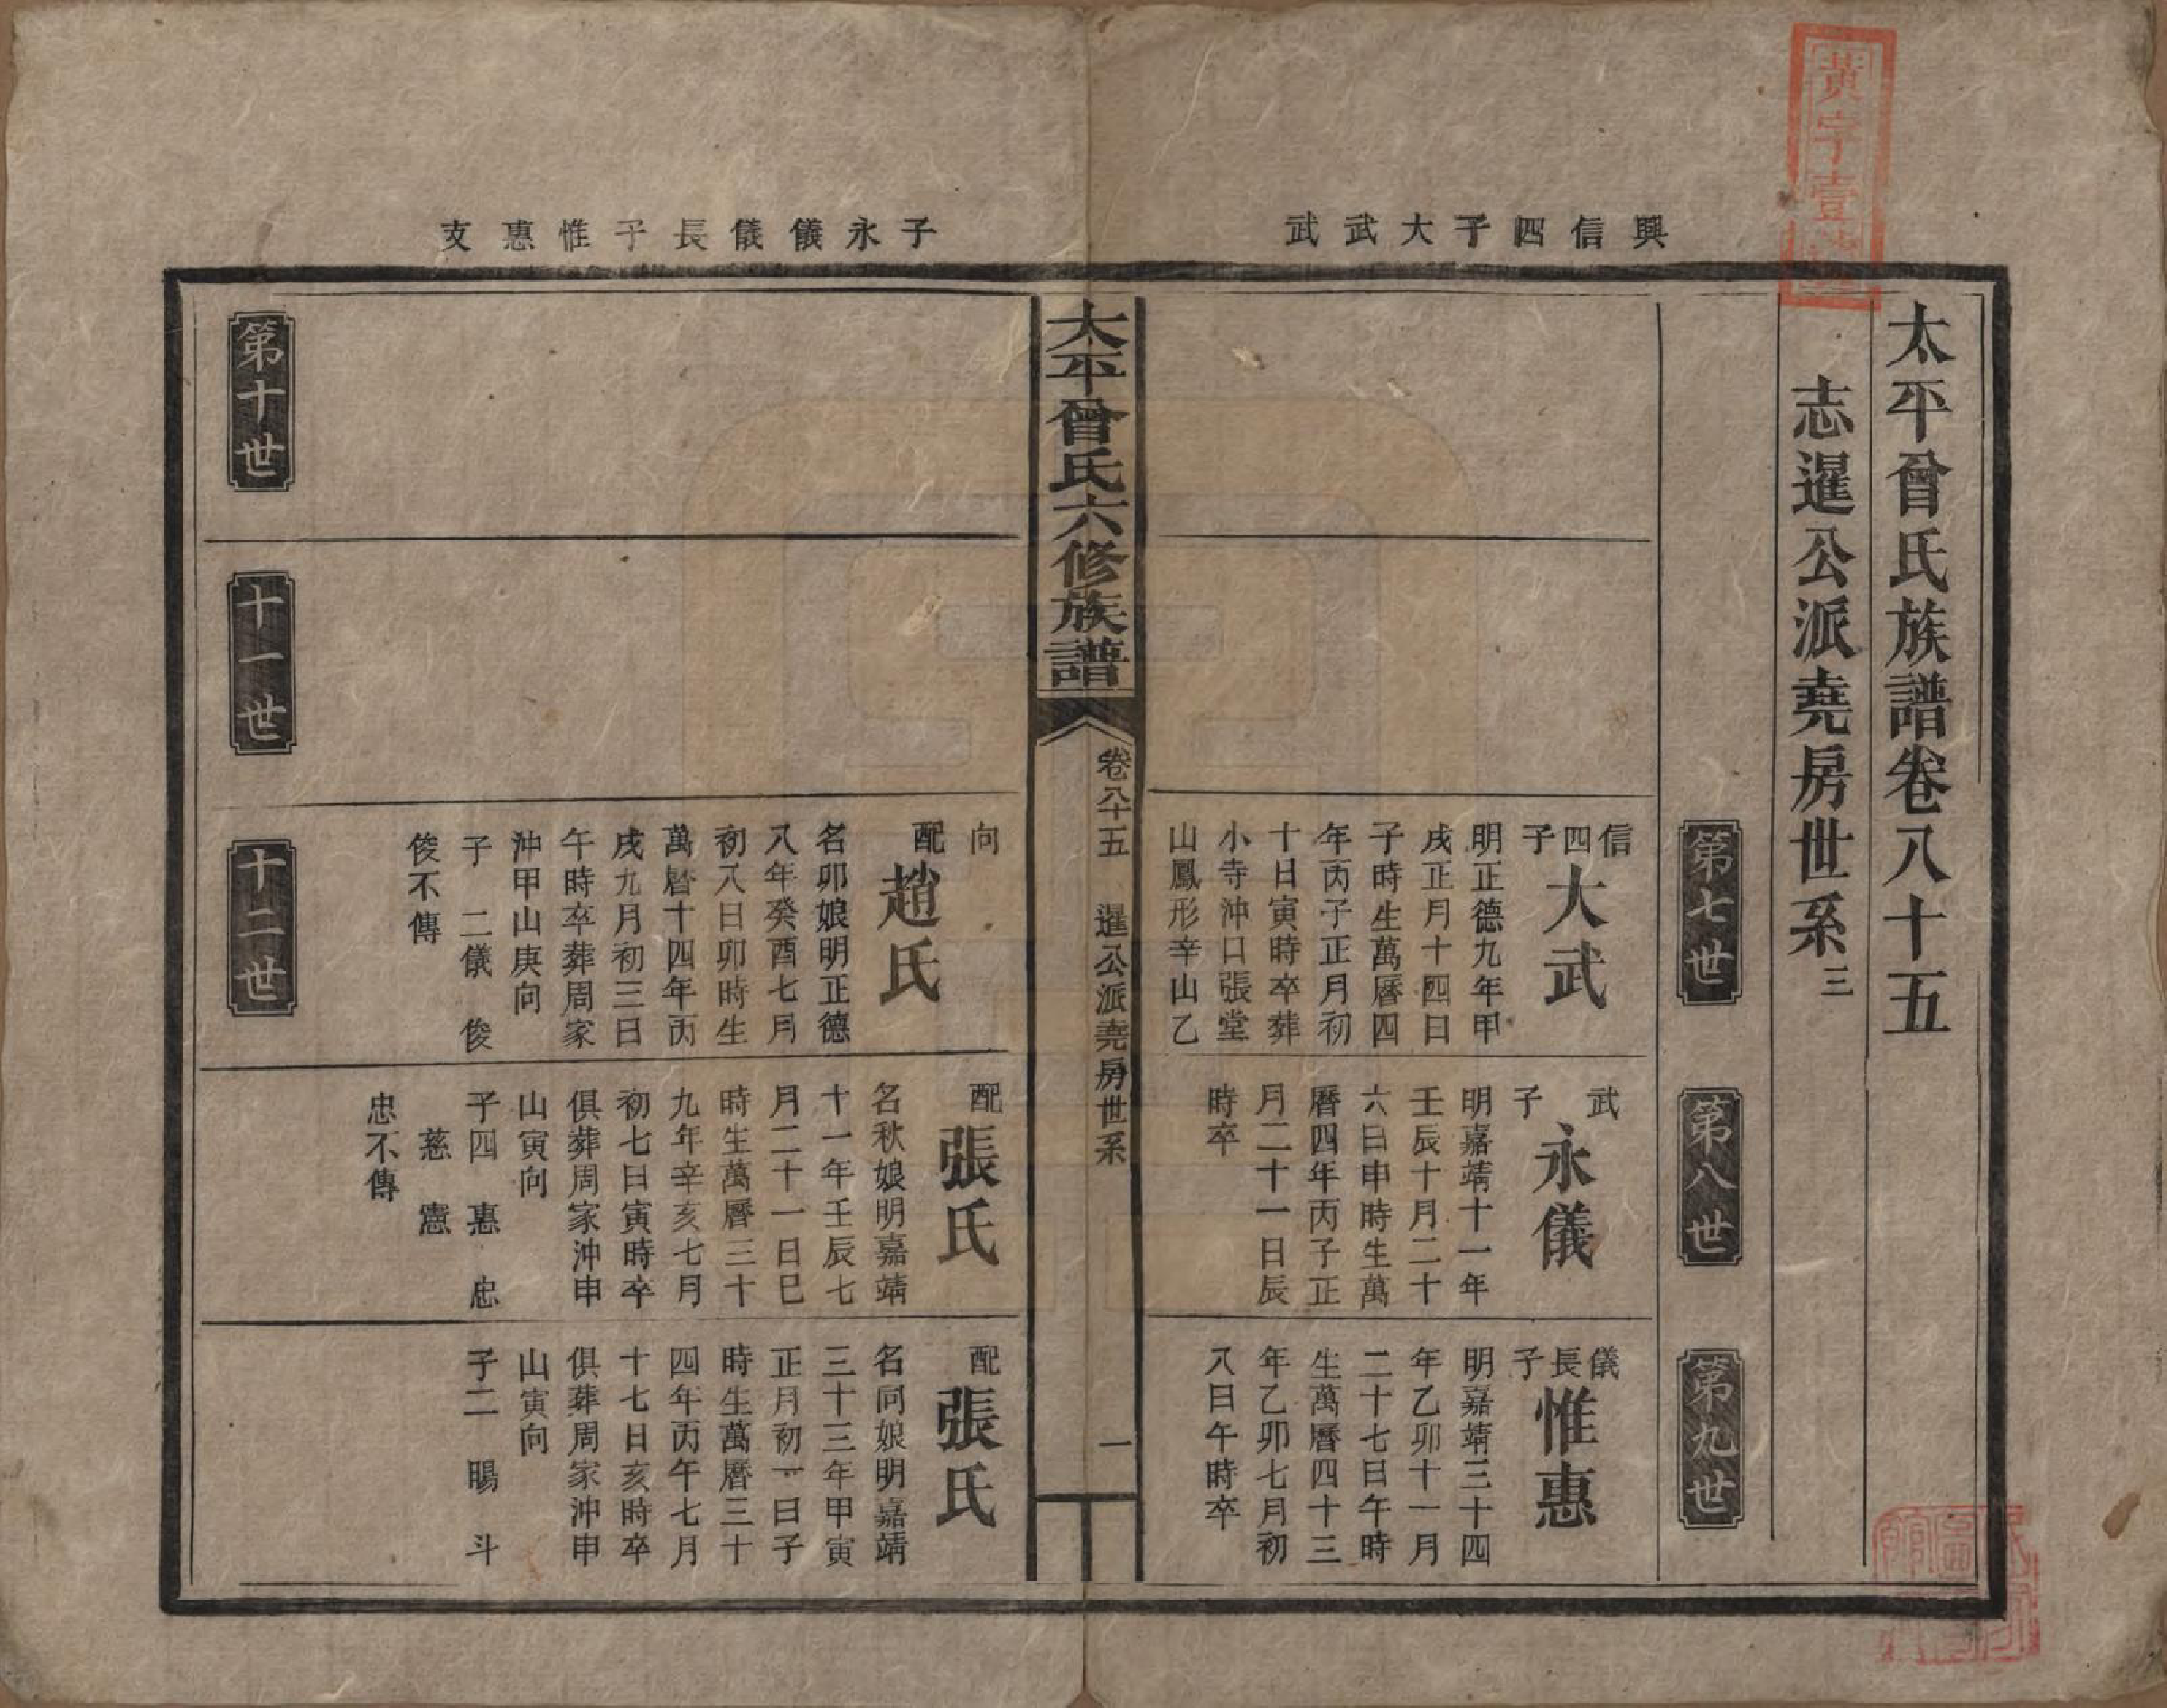 黃字壹
興信四子大武武
子永儀儀長子惟惠支
太平曾氏族譜卷八十五
志暹公派堯房世系三
第七世
第八世
第九世
信四子
大武
明正德九年甲
戌正月十四日
子時生萬曆四
年丙子正月初
十日寅時卒葬
小寺沖口張堂
山鳳形辛山乙
武子
永儀
明嘉靖十一年
壬辰十月二十
六日申時生萬
曆四年丙子正
月二十一日辰
時卒
儀長子
惟惠
明嘉靖三十四
年乙卯十一月
二十七日午時
生萬曆四十三
年乙卯七月初
八日午時卒
太平曾氏六修族譜
卷八十五
暹公派堯房世系
一
向
配
趙氏
名卯娘明正德
八年癸酉七月
初八日卯時生
萬曆十四年丙
戌九月初三日
午時卒葬周家
沖甲山庚向
子二儀俊
俊不傳
配
張氏
名秋娘明嘉靖
十一年壬辰七
月二十一日巳
時生萬曆三十
九年辛亥七月
初七日寅時卒
俱葬周家沖申
山寅向
子四惠忠
慈憲
忠不傳
配
張氏
名同娘明嘉靖
三十三年甲寅
正月初一日子
時生萬曆三十
四年丙午七月
十七日亥時卒
俱葬周家沖申
山寅向
子二賜斗
第十世
十一世
十二世